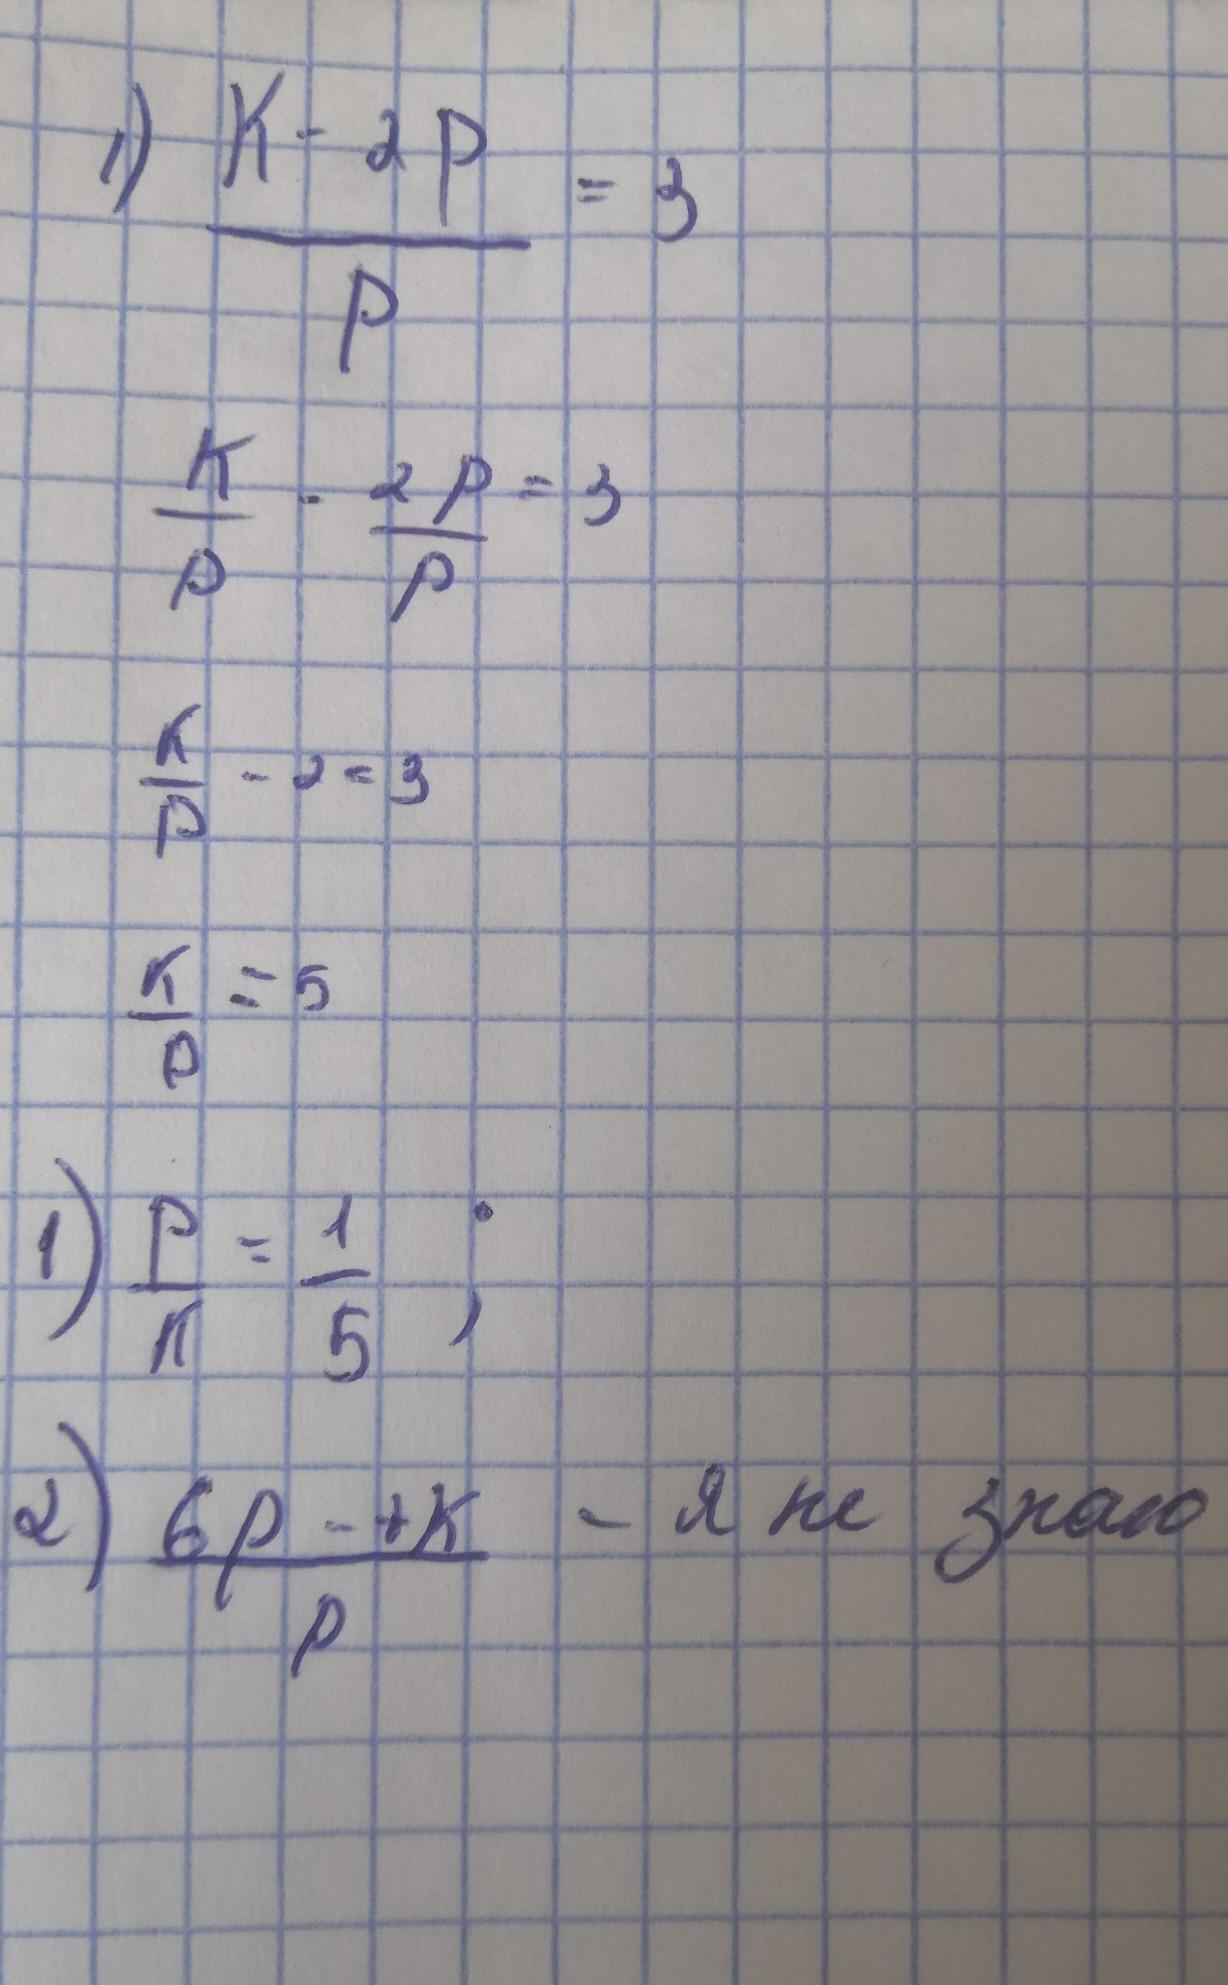 1) K - 2p
= 3
p
K/p - 2p/p = 3
K/p - 2 = 3
K/p = 5
1) p/K = 1/5 ;
2) 6p - +K / p - я не знаю